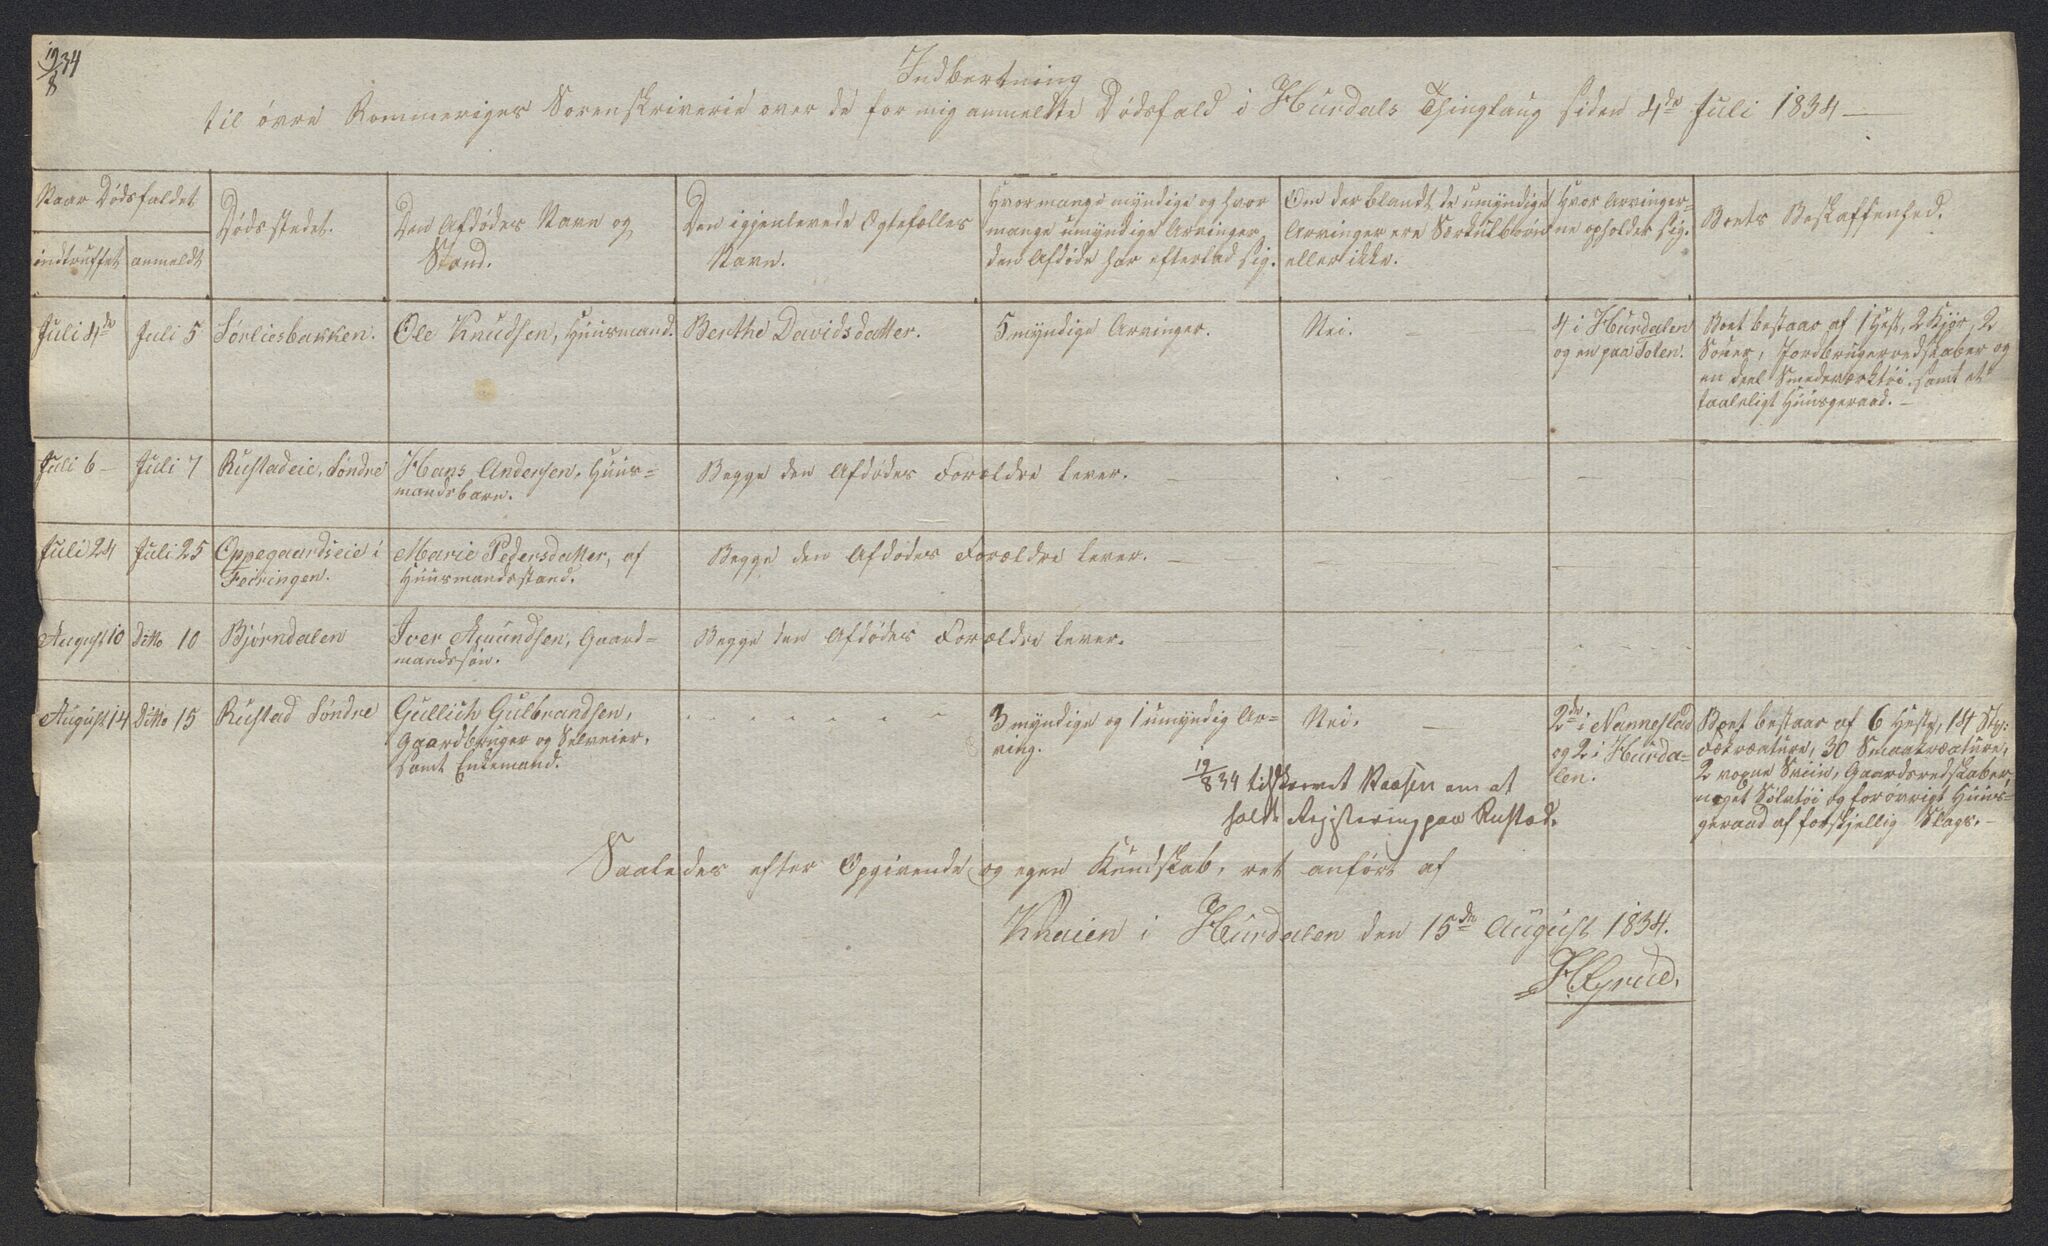 19/8 34
Indberetning
til øvre Rommeriges Sorenskriverie over de for mig anmeldte Dødsfald i Hurdals Thinglaug siden 4de Juli 1834 —
Naar Dødsfaldet
indtruffet
anmeldt
Dødsstedet.
Den Afdødes Navn og
Stand.
Den igjenlevede Egtefælles
Navn.
Hvor mange myndige og hvor
mange umyndige Arvinger
den Afdøde har efterlad sig.
Om der blandt de umyndige
Arvinger ere Særkulbørn
eller ikke.
Hvor Arvinger-
ne opholder sig.
Boets Beskaffenhed.
Juli 4de
Juli 5
Sørliesbakken.
Ole Knudsen, Huusmand.
Berthe Davidsdatter.
5 myndige Arvinger.
Nei. —
4 i Hurdalen
og en paa Toten.
Boet bestaar af 1 Hest, 2 Kjør, 2
Souer, Jordbrugerredskaber og
en deel Smedeværktøi, samt et
taaleligt Huusgeraad. —
Juli 6 —
Juli 7
Rustadeie, Søndre
Hans Andersen, Huus=
mandsbarn.
Begge den Afdødes Forældre lever. —
Juli 24
Juli 25
Oppegaardseie i
Feiringen.
Marie Pedersdatter, af
Huusmandsstand.
Begge den Afdødes Forældre lever. —
August 10
Ditto 10
Bjørndalen
Iver Amundsen, Gaard=
mandssøn.
Begge den Afdødes Forældre lever. —
August 14
Ditto 15
Rustad Søndre
Gullich Gulbrandsen,
Gaardbruger og Selveier,
samt Enkemand.
3 myndige og 1 umyndig Ar=
ving.
Nei. —
2de i Nannestad
og 2 i Hurda=
len.
Boet bestaar af 6 Heste, 14 Stk:
Fækreature, 30 Smaakreature,
2 voxne Sviin, Gaardsredskaber,
noget Sølvtøi og forøvrigt Huus=
geraad af forskjellig Slags. —
19/8 34 tilskrevet Naasen om at
holde Registering paa Rustad.
Saaledes efter Opgivende og egen Kundskab, ret anført af
Knaien i Hurdalen den 15de August 1834.